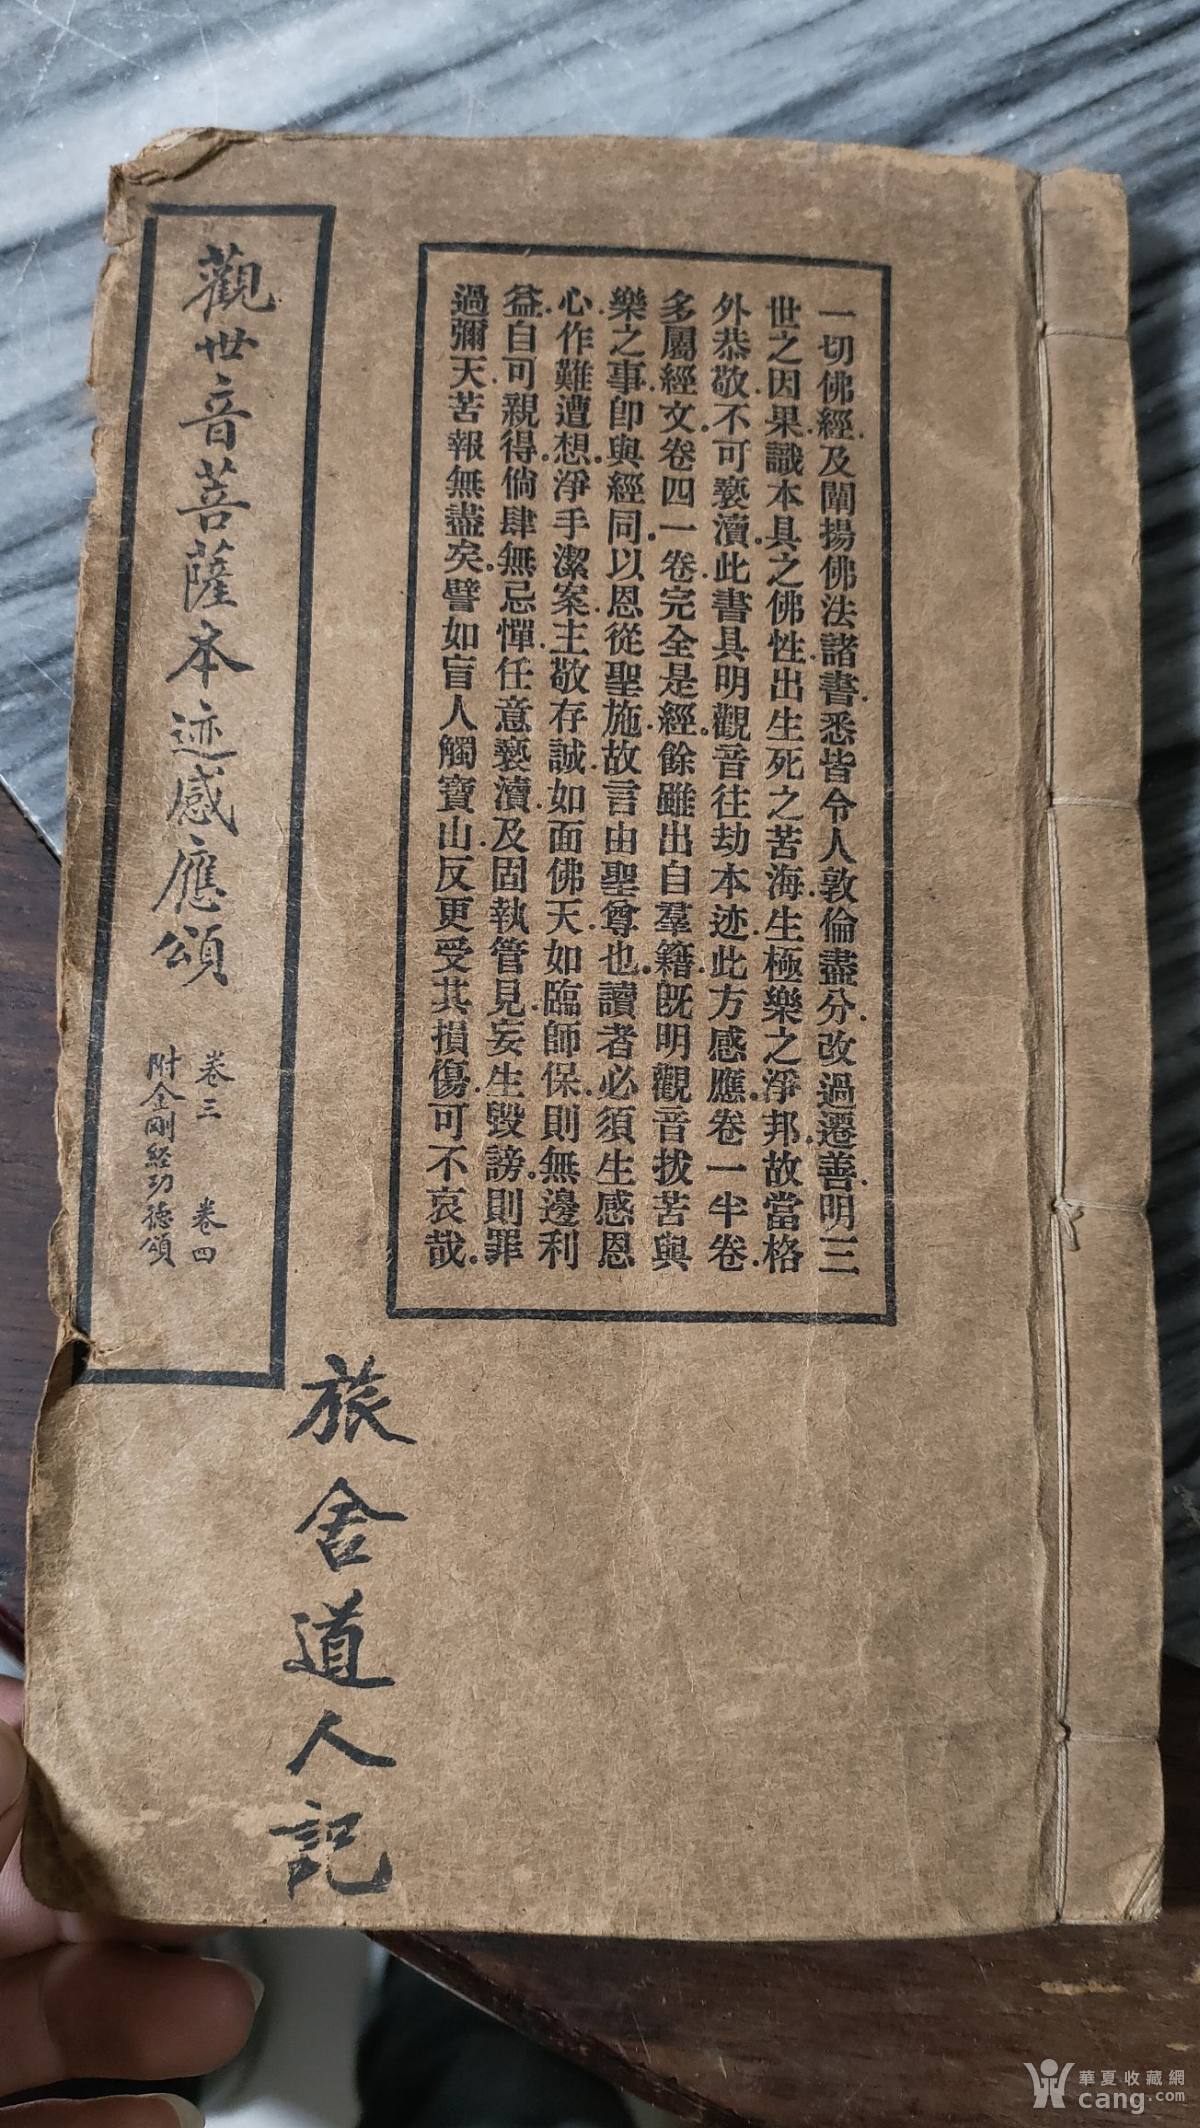 一切佛經.及闡揚佛法諸書.悉皆令人敦倫盡分.改過遷善.明三
世之因果.識本具之佛性.出生死之苦海.生極樂之淨邦.故當格
外恭敬.不可褻瀆.此書具明觀音往劫本迹.此方感應.卷一半卷.
多屬經文.卷四一卷.完全是經.餘雖出自羣籍.旣明觀音拔苦與
樂之事.卽與經同.以恩從聖施.故言由聖尊也.讀者必須生感恩
心.作難遭想.淨手潔案.主敬存誠.如面佛天.如臨師保.則無邊利
益.自可親得.倘肆無忌憚.任意褻瀆.及固執管見.妄生毀謗.則罪
過彌天.苦報無盡矣.譬如盲人觸寶山.反更受其損傷.可不哀哉.
觀世音菩薩本迹感應頌
卷三 卷四
附金剛経功德頌
旅舍道人記
華夏收藏網
cang.com